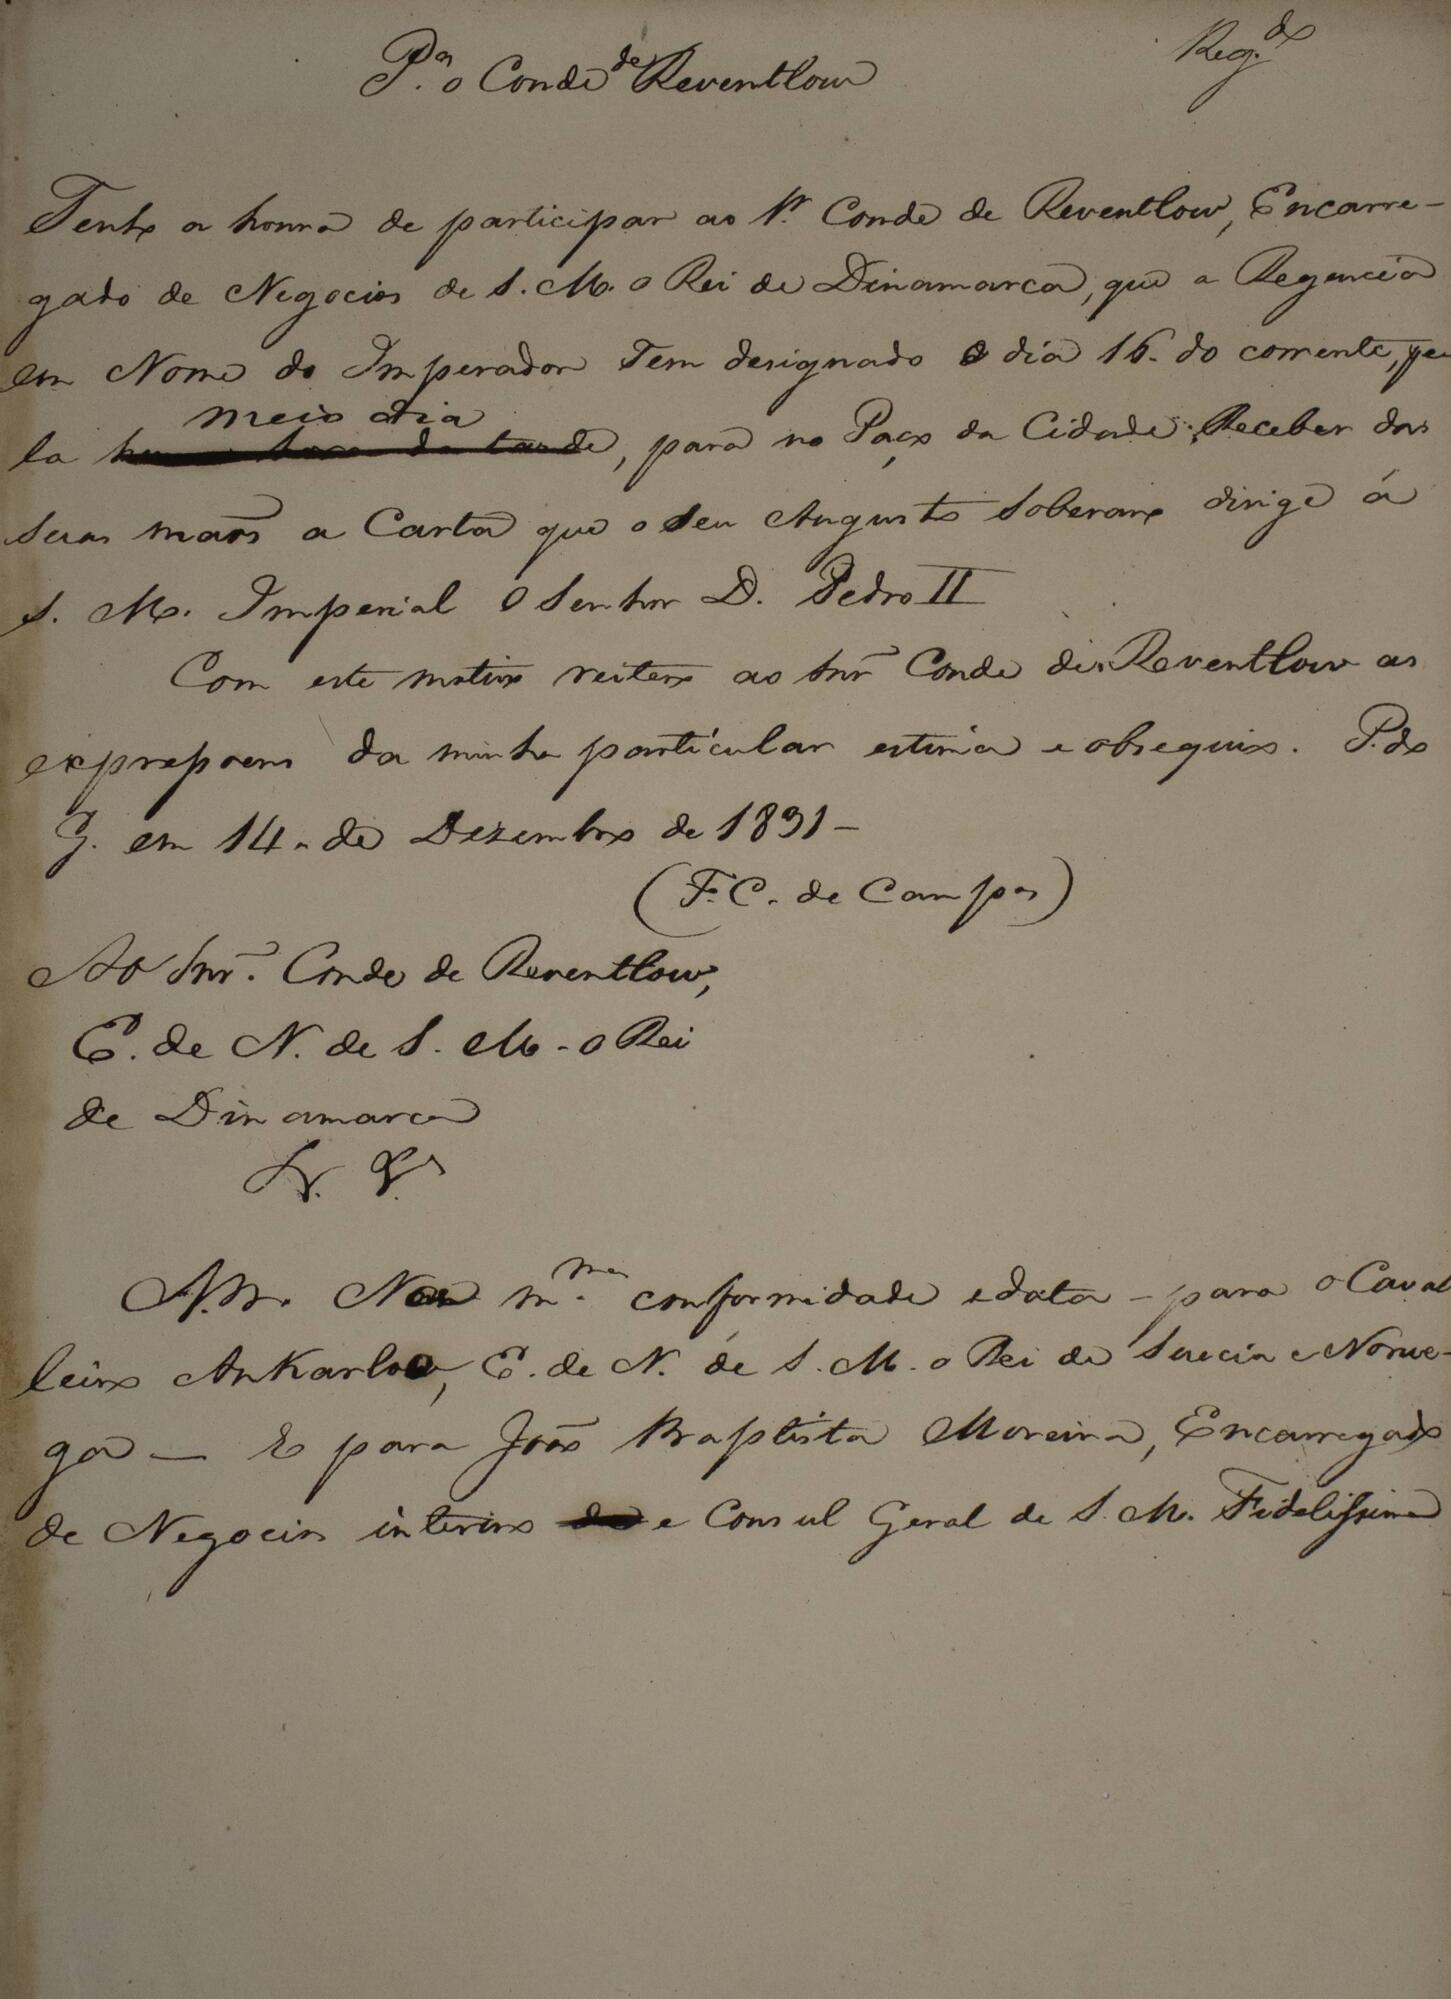 P.ª o Conde de Reventlow
Reg.do
Tenho a honra de participar ao Sr. Conde de Reventlow, Encarre-
gado de Negocios de S. M. o Rei de Dinamarca, que a Regencia
em Nome do Imperador tem designado o dia 16. do corrente, pe-
meio dia
la huma hora da tarde, para no Paço da Cidade Receber das
suas maõs a Carta que o Seu Augusto Soberano dirige á
S. M. Imperial O Senhor D. Pedro II
Com este motivo reitero ao Snr Conde de Reventlow as
expressoens da minha particular estima e obsequio. P. do
G. em 14. de Dezembro de 1831 -
(F. C. de Campos)
Ao Snr. Conde de Reventlow,
E. de N. de S. M. o Rei
de Dinamarca
N. B. Na m.ma conformidade e data - para o Caval
leiro Ankarloo, E. de N. de S. M. o Rei de Suecia e Norue-
ga — E para Joaõ Baptista Moreira, Encarregado
de Negocios interino de e Consul Geral de S. M. Fidelissima